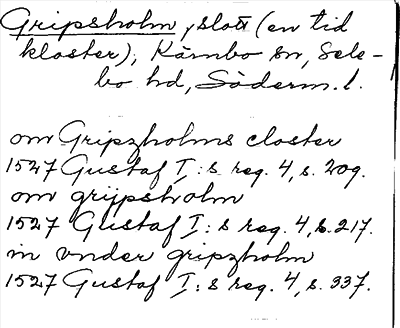 Gripsholm, slott (en tid
kloster), Kärnbo sn, Sele-
bo hd, Söderm. l.
om Gripzholms closter
1527 Gustaf I:s reg. 4, s. 209.
om grijpsholm
1527 Gustaf I:s reg. 4, s. 217.
in vnder gripzholm
1527 Gustaf I:s reg. 4, s. 337.